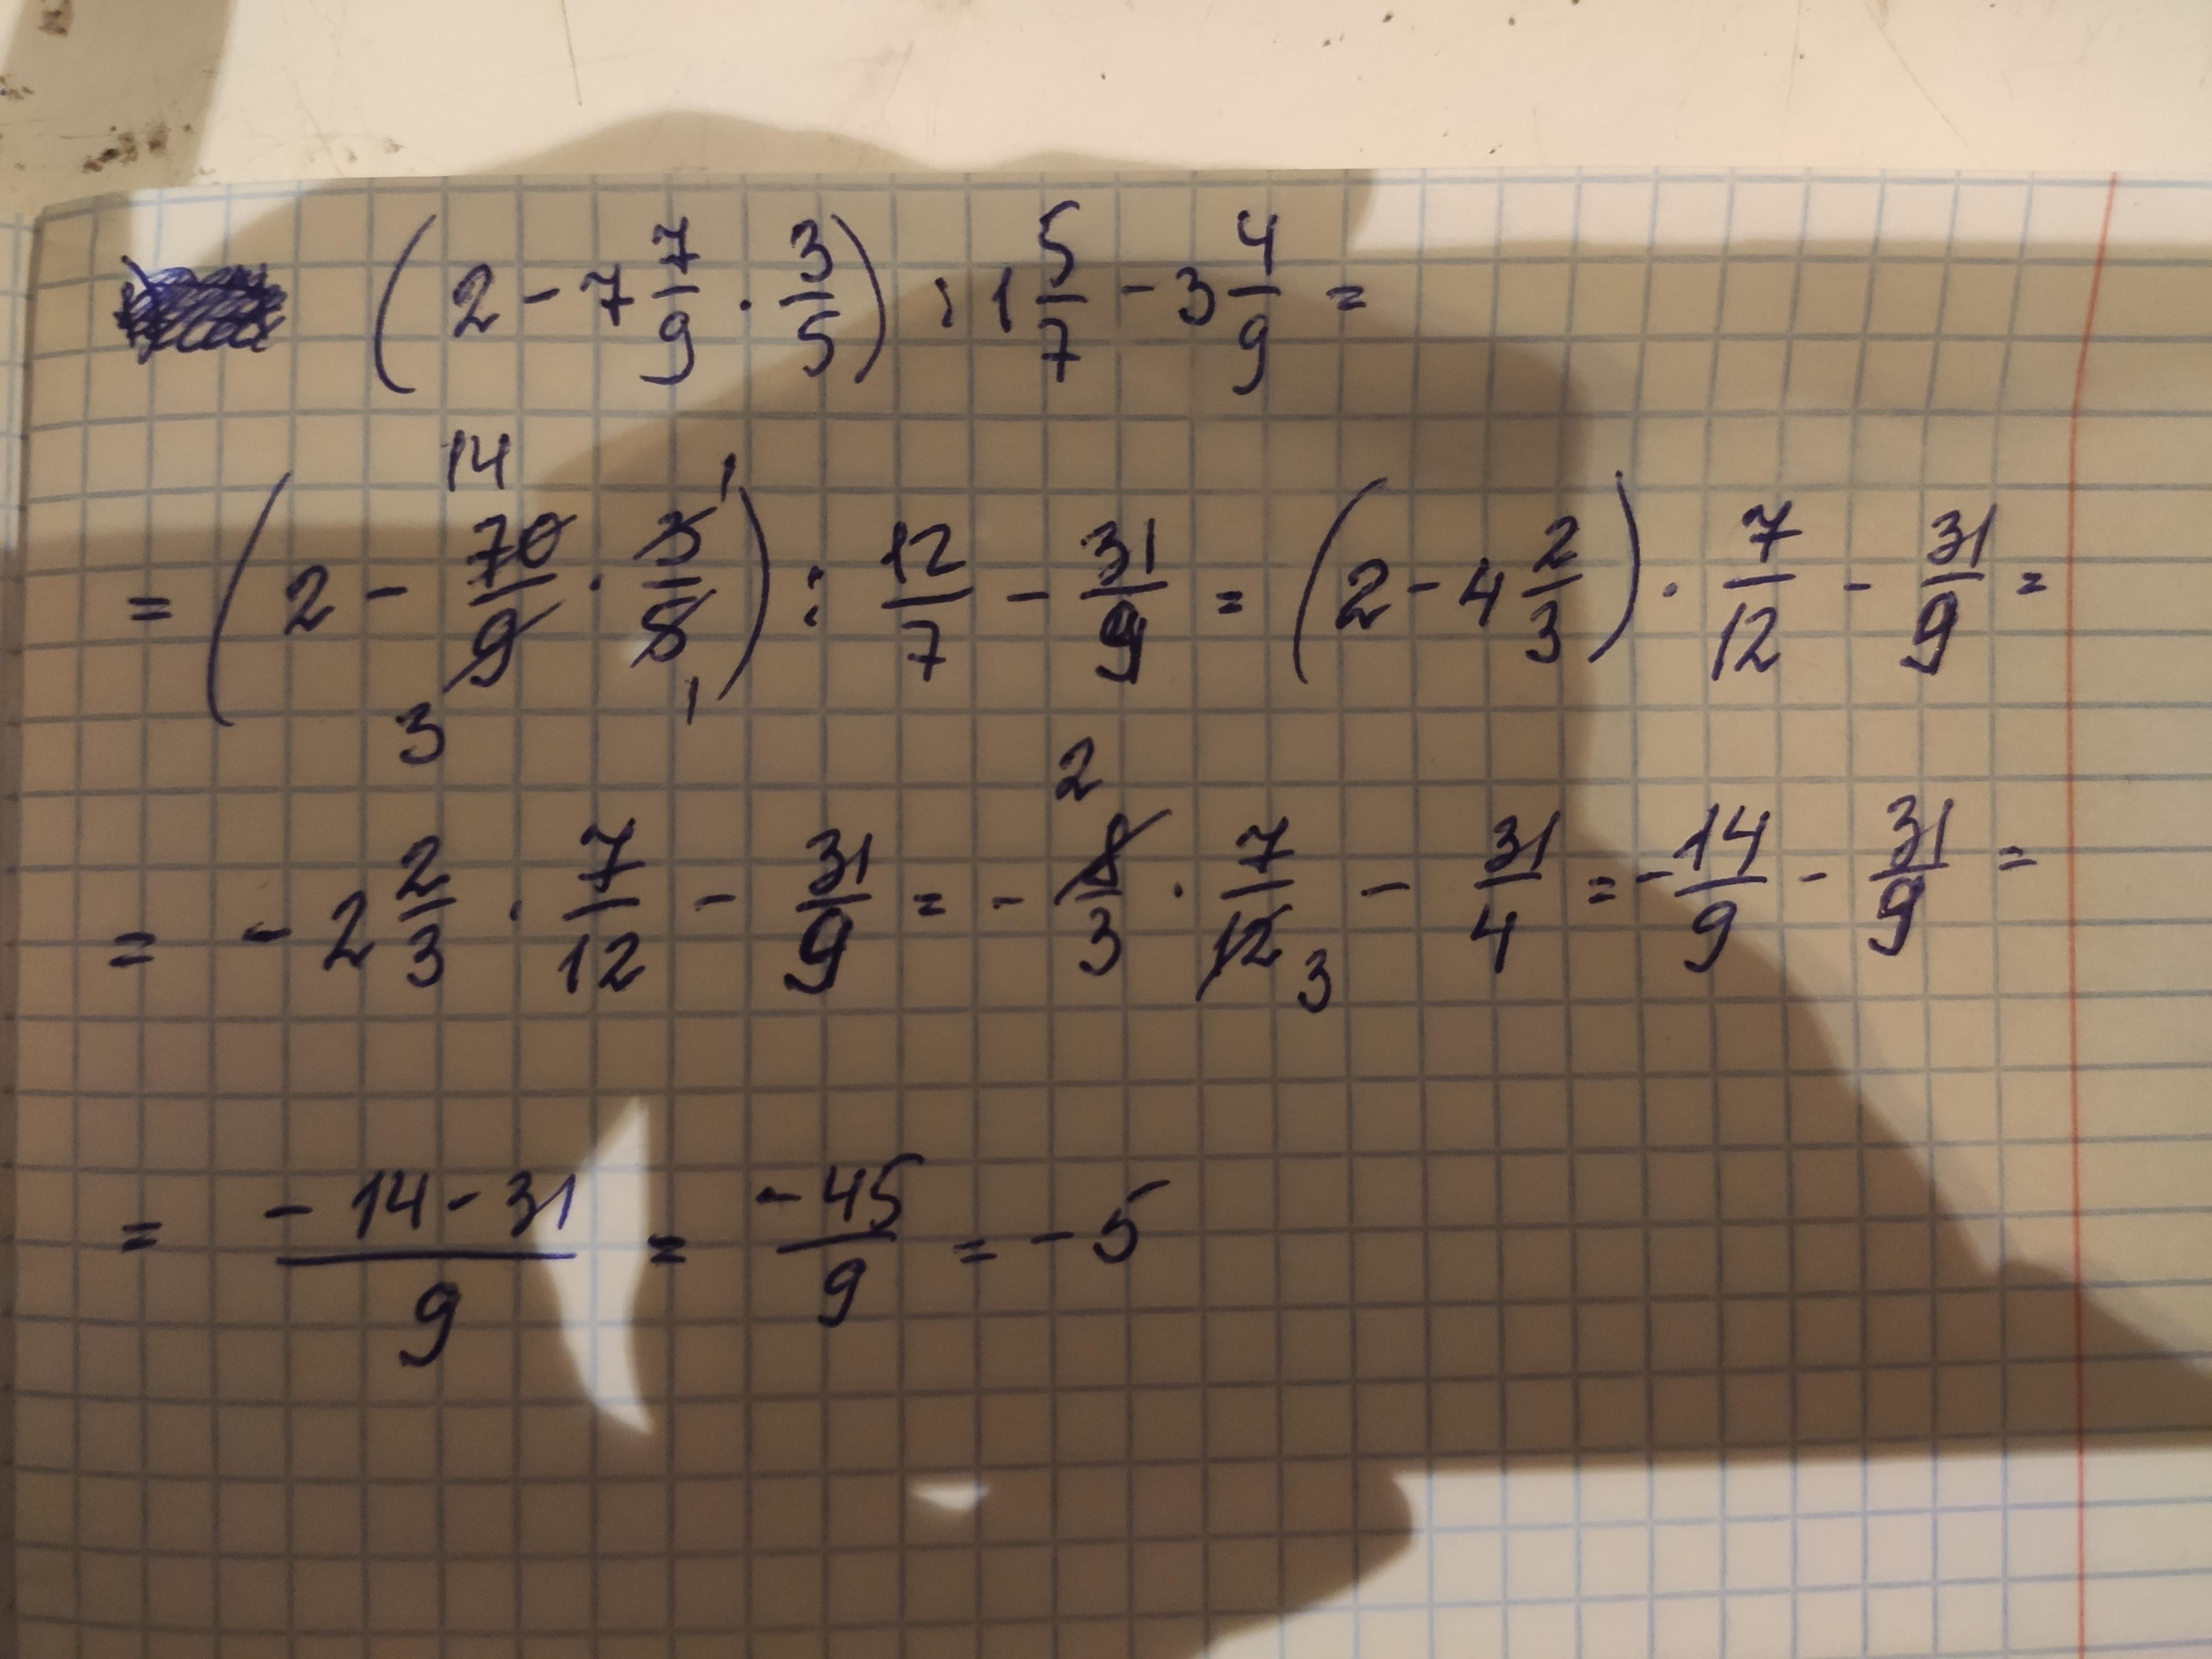 (2 - 7 7/9 · 3/5) : 1 5/7 - 3 4/9 =
= (2 - 70/9 · 3/5) : 12/7 - 31/9 = (2 - 4 2/3) · 7/12 - 31/9 =
14 1
3 1
= - 2 2/3 · 7/12 - 31/9 = - 8/3 · 7/12 - 31/4 = - 14/9 - 31/9 =
2
3
= (- 14 - 31)/9 = - 45/9 = - 5